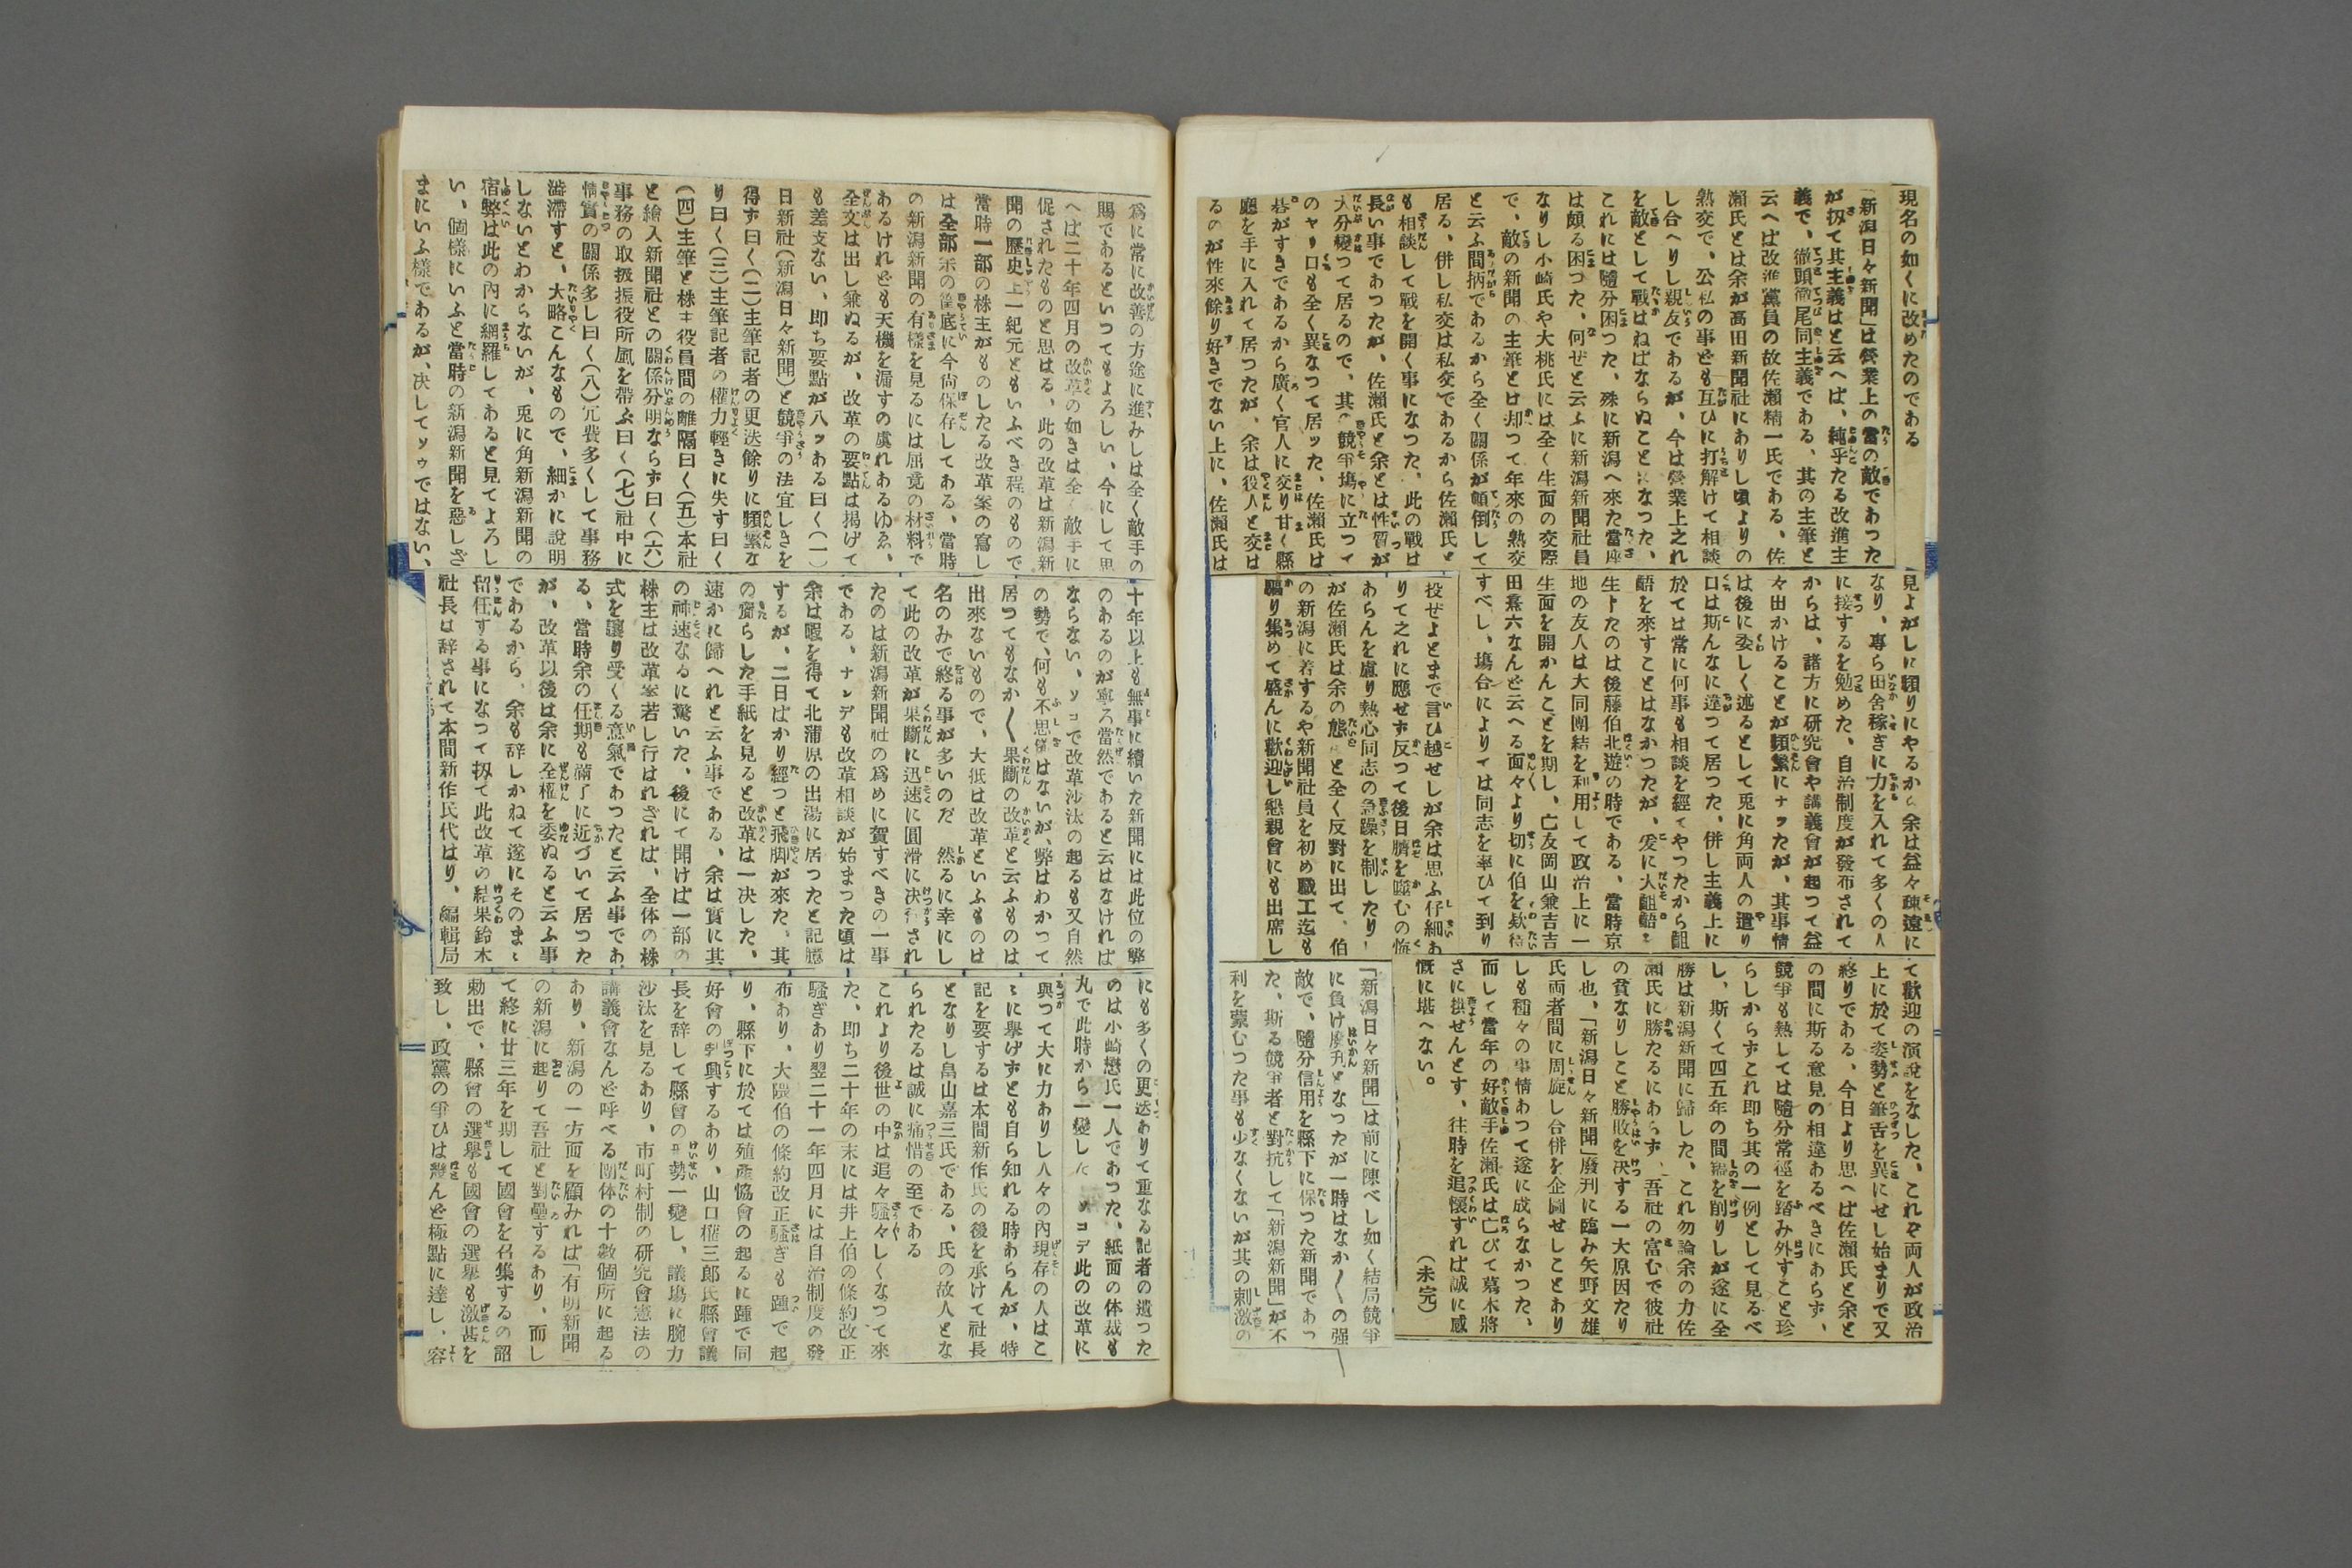 現名の如くに改めたのである
「新潟日々新聞」は營業上の當の敵であつた
が扨て其主義はと云へば、純乎たる改進主
義で、徹頭徹尾同主義である、其の主筆と
云へば改進黨員の故佐瀬精一氏である、佐
瀬氏とは余が高田新聞社にありし頃よりの
熱交で、公私の事ども互ひに打解けて相談
し合へりし親友であるが、今は營業上之れ
を敵として戰はねばならぬことになつた、
これには隨分困つた、殊に新潟へ來た當座
は頗る困つた、何ぜと云ふに新潟新聞社員
なりし小崎氏や大桃氏には全く生面の交際
で、敵の新聞の主筆とは却つて年來の熱交
と云ふ間柄であるから全く關係が顛倒して
居る、併し私交は私交であるから佐瀬氏と
も相談して戰を開く事になつた、此の戰は
長い事であつたが、佐瀬氏と余とは性質が
大分變つて居るので、其の競爭塲に立つて
のヤリ口も全く異なつて居ッた、佐瀬氏は
碁がすきであるから廣く官人に交り甘く縣
廳を手に入れて居つたが、余は役人と交は
るのが性來餘り好きでない上に、佐瀬氏は
見よがしに頻りにやるから余は益々疎遠に
なり、專ら田舍稼ぎに力を入れて多くの人
に接するを勉めた、自治制度が發布されて
からは、諸方に研究會や講義會が起つて益
々出かけることが頻繁にナッたが、其事情
は後に委しく述るとして兎に角両人の遣り
口は斯んなに違つて居つた、併し主義上に
於ては常に何事も相談を經てやつたから齟
齬を來すことはなかつたが、爰に大齟齬を
生トたのは後藤伯北遊の時である、當時京
地の友人は大同團結を利用して政治上に一
生面を開かんことを期し、亡友岡山兼吉吉
田熹六なんど云へる面々より切に伯を欵待
すべし、塲合によりては同志を率ひて到り
投ぜよとまで言ひ越せしが余は思ふ仔細あ
りて之れに應せず反つて後日臍を噬むの悔
あらんを慮り熱心同志の急躁を制したり、
が佐瀬氏は余の態度と全く反對に出て、伯
の新潟に着するや新聞社員を初め職工迄も
驅り集めて盛んに歡迎し懇親會にも出席し
て歡迎の演說をなした、これぞ両人が政治
上に於て姿勢と筆舌を異にせし始まりで又
終りである、今日より思へば佐瀬氏と余と
の間に斯る意見の相違あるべきにあらず、
競爭も熱しては隨分常徑を踏み外すこと珍
らしからずこれ即ち其の一例として見るべ
し、斯くて四五年の間鎬を削りしが遂に全
勝は新潟新聞に歸した、これ勿論余の力佐
瀬氏に勝たるにあらす、吾社の富むで彼社
の貧なりしこと勝敗を決する一大原因たり
し也、「新潟日々新聞」廢刋に臨み矢野文雄
氏両者間に周旋し合併を企圖せしことあり
しも種々の事情あつて遂に成らなかつた、
而して當年の好敵手佐瀬氏は亡びて墓木將
さに拱せんとす、往時を追懷すれば誠に感
慨に堪へない。
（未完）
「新潟日々新聞」は前に陳べし如く結局競爭
に負け廢刋となつたが一時はなか〳〵の强
敵で、隨分信用を縣下に保つた新聞であつ
た、斯る競爭者と對抗して「新潟新聞」が不
利を蒙むつた事も少なくないが其の刺激の
爲に常に改善の方途に進みしは全く敵手の
賜であるといつてもよろしい、今にして思
へば二十年四月の改革の如きは全く敵手に
促されたものと思はる、此の改革は新潟新
聞の歷史上一紀元ともいふべき程のもので
當時一部の株主がものしたる改革案の寫し
は全部余の筐底に今尙保存してある、當時
の新潟新聞の有樣を見るには屈竟の材料で
あるけれども天機を漏すの虞れあるゆゑ、
全文は出し兼ぬるが、改革の要點は揭げて
も差支ない、即ち要點が八ッある曰く（一）
日新社（新潟日々新聞）と競爭の法宜しきを
得ず曰く（二）主筆記者の更迭餘りに頻繁な
り曰く（三）主筆記者の權力輕きに失す曰く
（四）主筆と株主役員間の離隔曰く（五）本社
と繪入新聞社との關係分明ならず曰く（六）
事務の取扱振役所風を帶ぶ曰く（七）社中に
情實の關係多し曰く（八）冗費多くして事務
澁滯すと、大略こんなもので、細かに說明
しないとわからないが、兎に角新潟新聞の
宿弊は此の內に網羅してあると見てよろし
い、個樣にいふと當時の新潟新聞を惡しざ
まにいふ樣であるが、决してソゥではない、
十年以上も無事に續いた新聞には此位の弊
のあるのが寧ろ當然であると云はなければ
ならない、ソコで改革沙汰の起るも又自然
の勢で、何も不思儀はないが、弊はわかつて
居つてもなか〳〵果斷の改革と云ふものは
出來ないもので、大抵は改革といふものは
名のみで終る事が多いのだ　然るに幸にし
て此の改革が果斷に迅速に圓滑に决行され
たのは新潟新聞社の爲めに賀すべきの一事
である、ナンデも改革相談が始まつた頃は
余は暇を得て北蒲原の出湯に居つたと記臆
するが、二日ばかり經つと飛脚が來た、其
の齎らした手紙を見ると改革は一决した、
速かに歸へれと云ふ事である、余は實に其
の神速なるに驚いた、後にて聞けば一部の
株主は改革案若し行はれざれば、全体の株
式を讓り受くる意氣であつたと云ふ事であ
る、當時余の任期も滿了に近づいて居つた
が、改革以後は余に全權を委ぬると云ふ事
であるから、余も辞しかねて遂にそのまヽ
留任する事になつて扨て此改革の結果鈴木
社長は辞されて本間新作氏代はり、編輯局
にも多くの更迭ありて重なる記者の遺つた
のは小崎懋氏一人であつた、紙面の体裁も
丸で此時から一變した　ソコデ此の改革に
與つて大に力ありし人々の內現存の人はこ
ヽに擧げずとも自ら知れる時あらんが、特
記を要するは本間新作氏の後を承けて社長
となりし畠山嘉三氏である、氏の故人とな
られたるは誠に痛惜の至である
これより後世の中は追々騷々しくなつて來
た、即ち二十年の末には井上伯の條約改正
騷ぎあり翌二十一年四月には自治制度の發
布あり、大隈伯の條約改正騷ぎも踵で起
り、縣下に於ては殖產協會の起るに踵で同
好會の勃興するあり、山口權三郎氏縣會議
長を辞して縣會の形勢一變し、議塲に腕力
沙汰を見るあり、市町村制の研究會憲法の
講義會なんど呼べる團体の十數個所に起る
あり、新潟の一方面を顧みれば「有明新聞」
の新潟に起りて吾社と對壘するあり、而し
て終に廿三年を期して國會を召集するの詔
勅出で、縣會の選擧も國會の選擧も激甚を
致し、政黨の爭ひは殆んど極點に達し、容